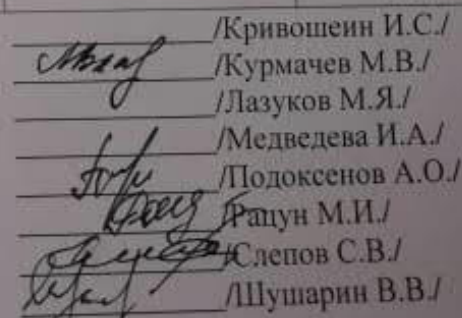 /Кривошеин И.С./
/Курмачев М.В./
/Лазуков М.Я./
/Медведева И.А./
/Подоксенов А.О./
/Рацун М.И./
/Слепов С.В./
/Шушарин В.В./